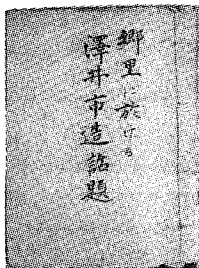 郷里に於ける
澤井市造話題